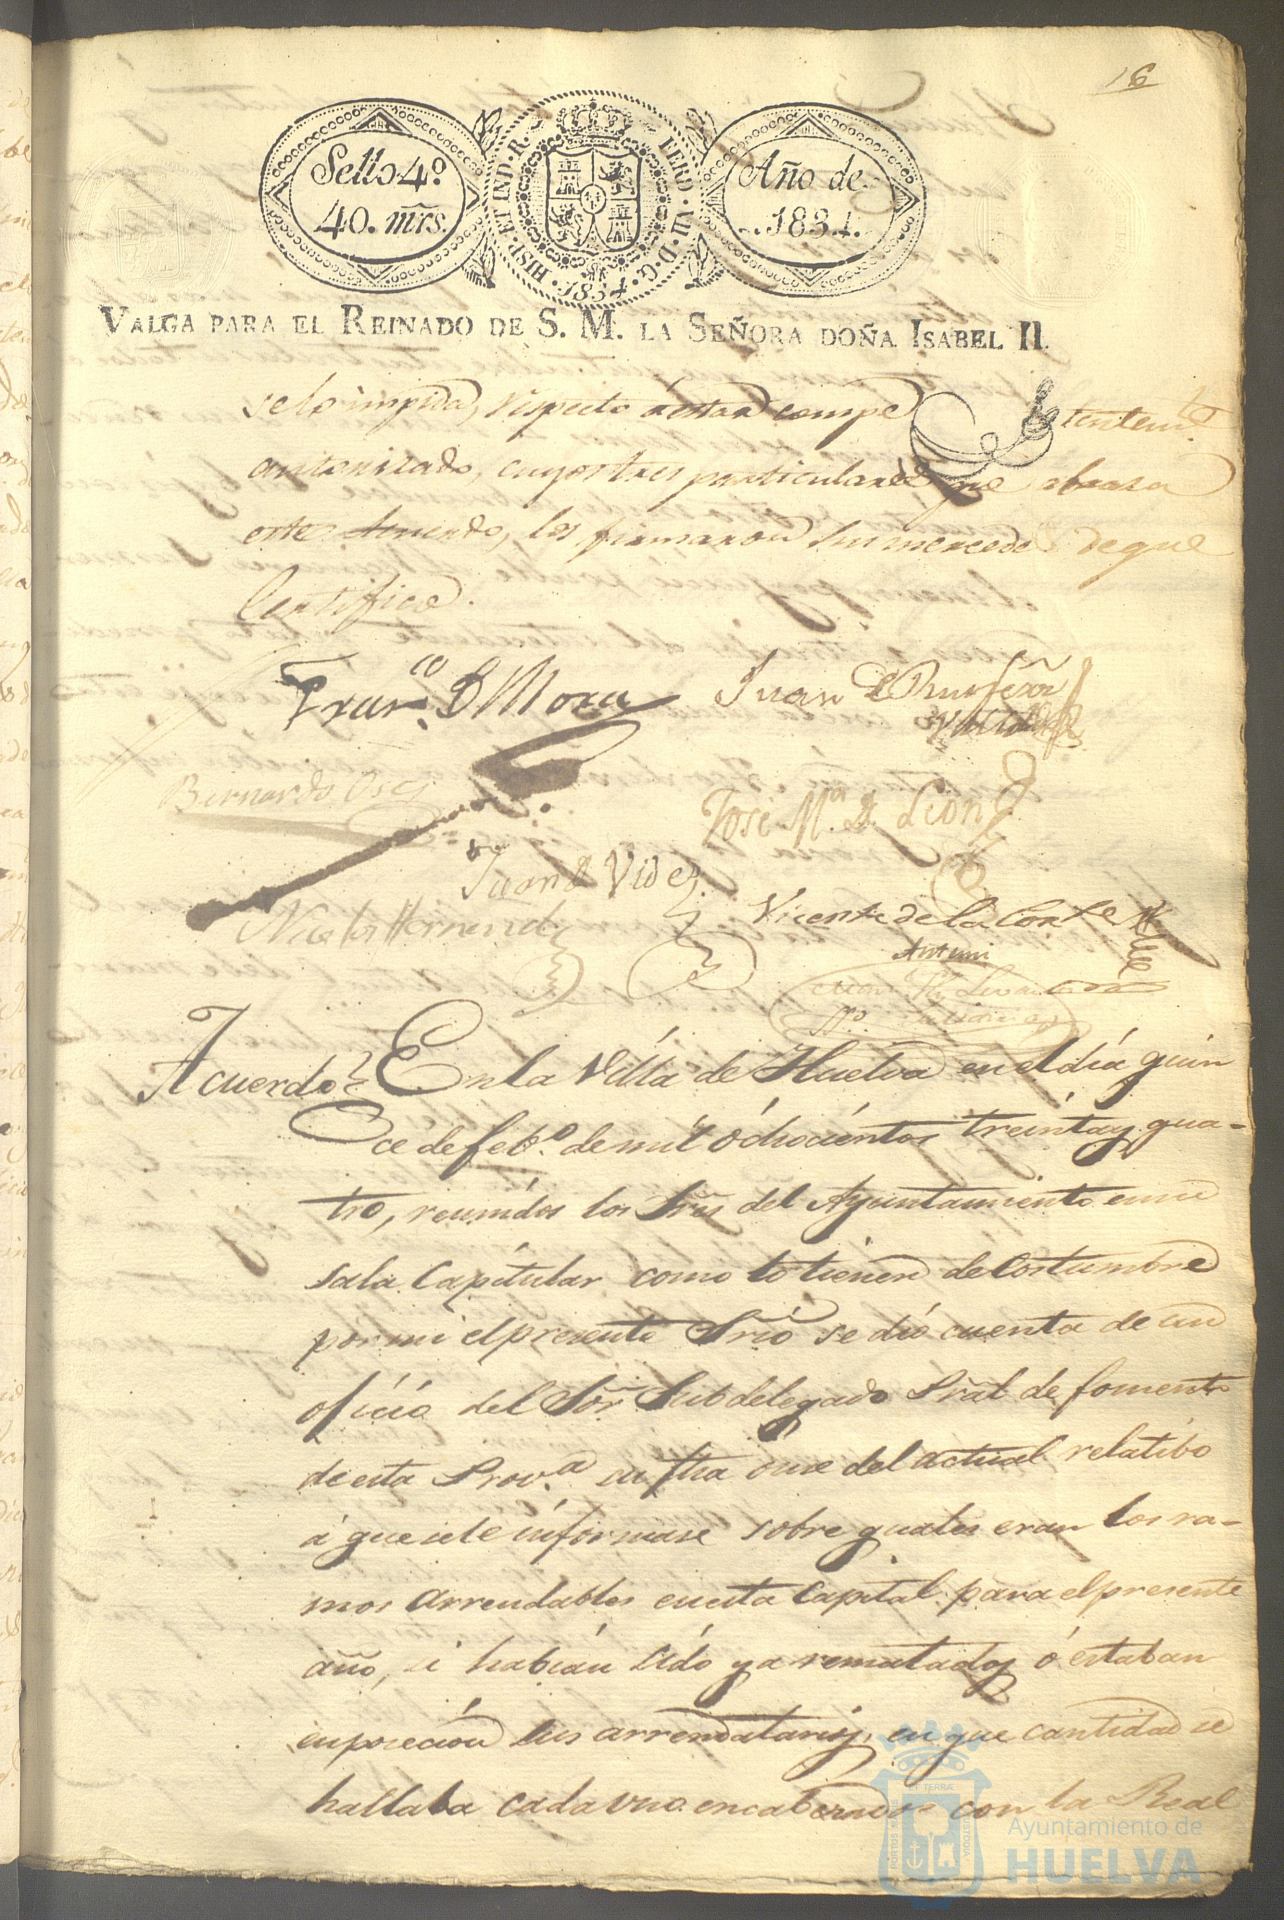 16
Sello 4º
40. mrs.
HISP. ET IND. R.
FERD. VII. D. G.
1834.
Año de
1834.
VALGA PARA EL REINADO DE S. M. LA SEÑORA DOÑA ISABEL II.
se lo impida, respecto á estar compe tentemte
autorizado, cuyos tres particulares que abraza
este Acuerdo, los firmaron sus mercedes de que
Certifico.
Franco. D Mora
Juan
Bernardo
José Mª. D. Leon
Juan D Vides
Vicente de la Corte
Nicolas Hernandz
Ante mi
Acuerdo En la Villa de Huelva en el dia quin
ce de febº. de mil óchocientos treinta y qua-
tro, reunidos los Sres del Ayuntamiento en su
sala Capitular como lo tienen de costumbre
por mi el presente Srio se dió cuenta de un
oficio del Sor. Subdelegado Pral de fomento
de esta Provª. su fha once del actual relatibo
á que se le informase sobre quales eran los ra-
mos arrendables en esta Capital para el presente
año, si habian sido ya rematados ó estaban
en posecion sus arrendatarios, en que cantidad se
hallaba cada uno encabezado con la Real
Ayuntamiento de
HUELVA